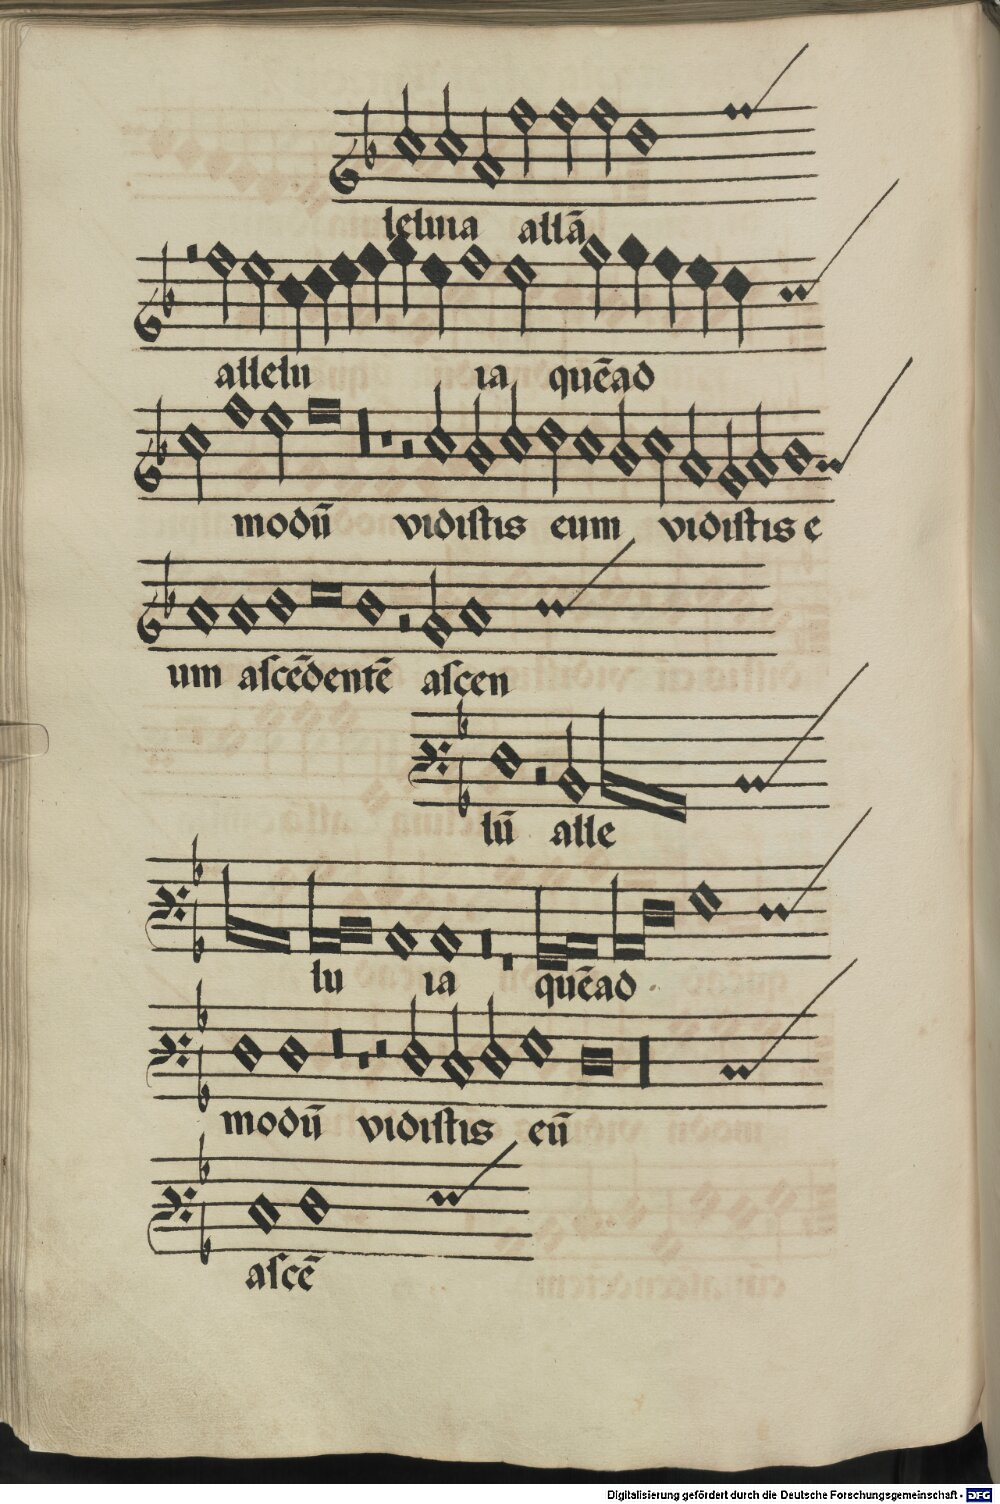 leluia allā
allelu ia quēad
modū vidistis eum vidistis e
um ascēdentē ascen
lū alle
lu ia quēad
modū vidistis eū
ascē
Digitalisierung gefördert durch die Deutsche Forschungsgemeinschaft - DFG